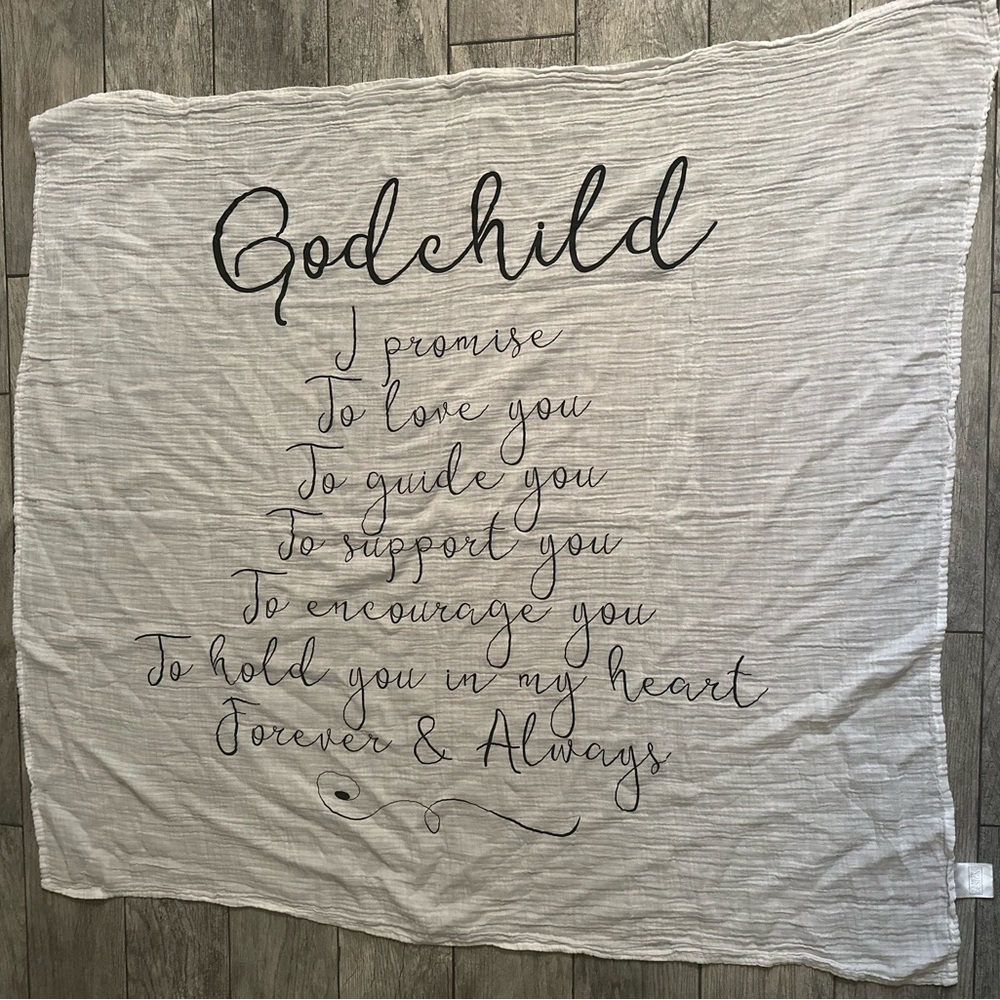 Godchild
I promise
To love you
To guide you
To support you
To encourage you
To hold you in my heart
Forever & Always